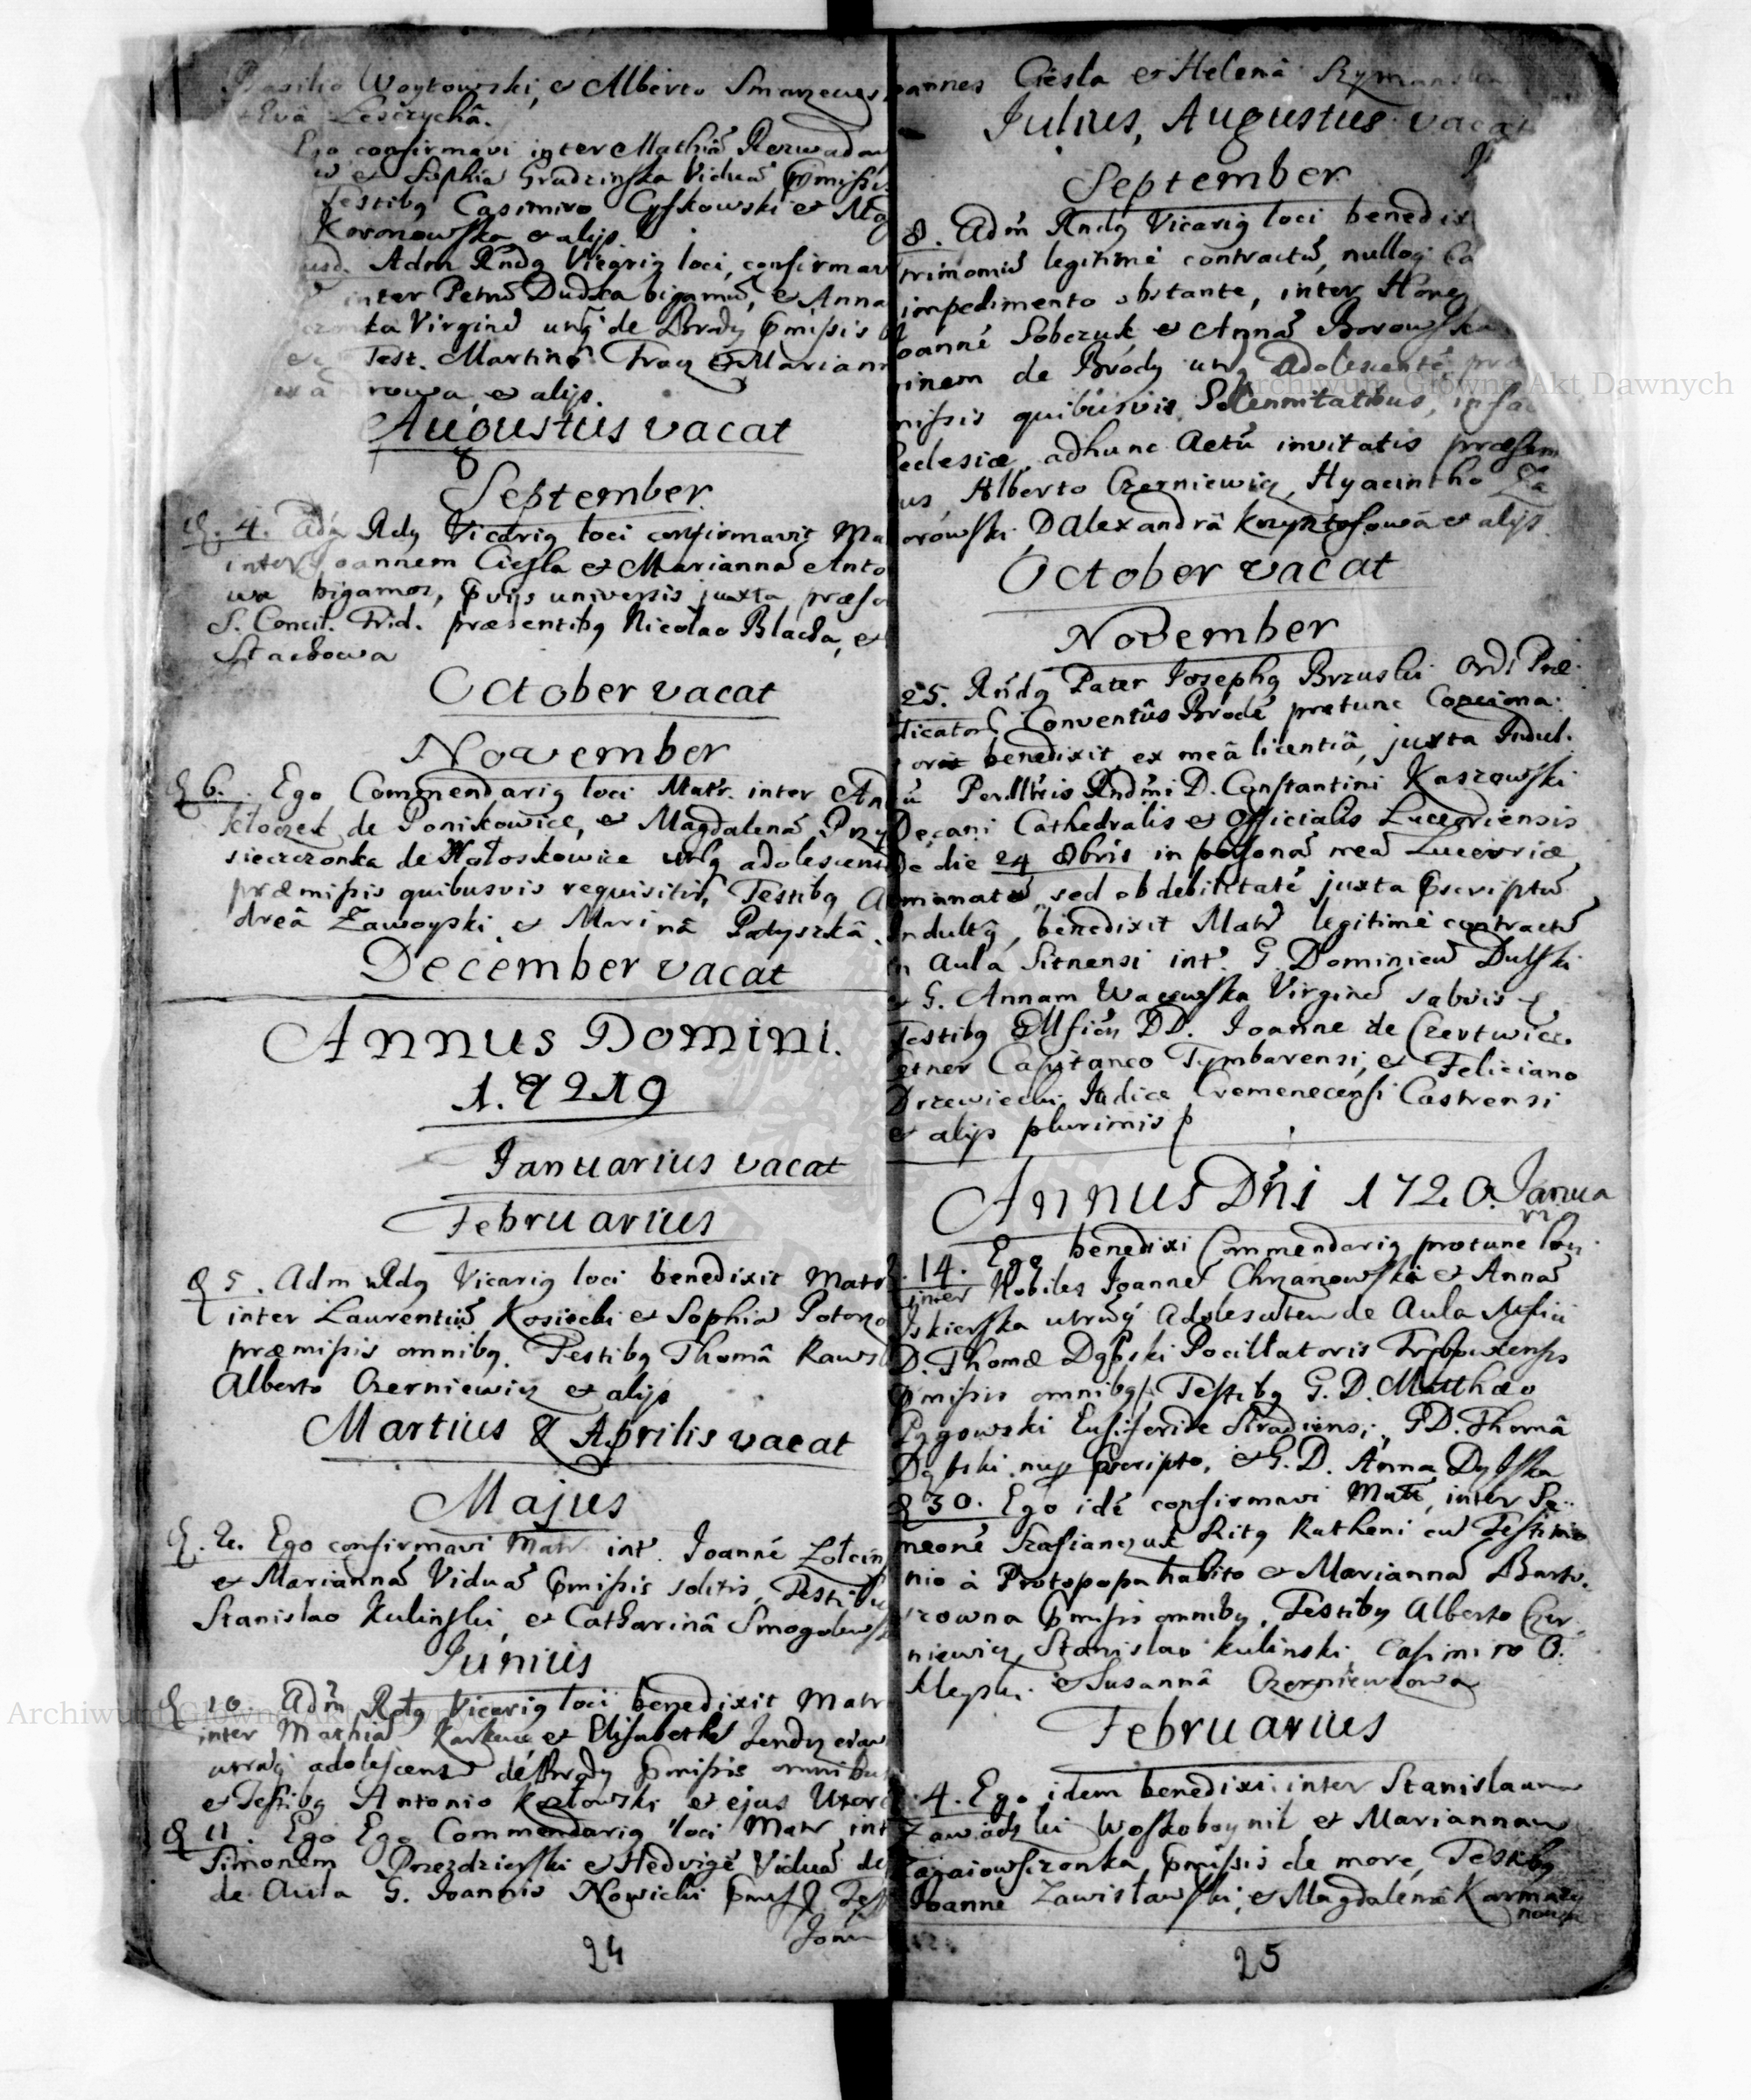 Woytowski, et Alberto Smarzews
Evâ Leszczychâ.
Ego confirmavi inter Mathiā Rozwadow
et Sophia Grudzinska Viduā pmissis
Testibq Casimiro Cyskowski et
Koronowska et alijs
Adm Rndq Vicariq loci, confirmav
inter Petrū Dudka bigamū, et Anna
ka Virginē utrq de Brody pmissis
Test. Martino Frąg et Mariann
rowa, et alijs.
Augustus vacat
September
4. Adm Rdq Vicariq loci confirmavit Ma
inter Joannem Ciesla et Mariannā Anto
wa bigamos, pvijs universis juxta præsc
S. Concil. Trid. præsentibq Nicolao Blacha, et
Stachowa
October vacat
November
6. Ego Commendariq loci Matr. inter An
Kloczek de Ponikowice, et Magdalenā Przy
sieczczonka de Wołoskowice utrq adolescent
præmissis quibusvis requisitis, Testibq A
dreâ Zawoyski et Marinâ Patyszkâ.
December vacat
Annus Domini.
1.7219
Januarius vacat
Februarius
5. Adm Rdq Vicariq loci benedixit Matr
inter Laurentiū Kosiecki et Sophiā Potorzo
præmissis omnibq. Testibq Thomâ Raws
Alberto Czerniewicz et alijs
Martius & Aprilis vacat
Majus
2. Ego confirmavi Matr int. Joannē
et Mariannā Viduā pmissis solitis, Testibu
Stanislao Kulinski, et Catharinâ Smogolewsk
Junius
10. Adm Rdq Vicariq loci benedixit Matr
inter Mathiā et Elisabethā
utrūq adolescent de Brody pmissis omnibu
et Testibq Antonio Kozłowski et ejus Uxore
11. Ego Ego Commendariq loci Matr int
Simonem Przezdzieski et Hedvigē Viduā de
de Aula G. Joannis Nowicki pmiss Tess
Joan
24
oannes Ciesla et Helenâ
Julius, Augustus vacat
September
8. Adm Rndq Vicariq loci benedix
trimoniū legitimè contractū, nulloq Ca
impedimento obstante, inter Hone
Joannē Sobczuk et Annā Borowska
ginem de Brody utrq Adolescentē præ
missis quibusvis Solennitatibus, in fac
Ecclesiæ, adhunc Actū invitatis præsent
us, Alberto Czerniewicz, Hyacintho Za
orowski, D Alexandrâ Krzysztofowa et alijs.
October vacat
November
25. Rndq Pater Josephq Brzuski Ord. Præ
dicator Conventûs Brodē protunc Conciona
oris benedixit ex meâ licentiâ, juxta Indul
ū Perillris Rndmi D. Constantini Kaszowski
Decani Cathedralis et Officialis Luceoriensis
de die 24 8bris in personā meā Luceoriæ
manatū, sed ob debilitatē juxta pscriptū
Indultū, benedixit Matr legitimè contractū
in Aula Sitnensi int. G. Dominicū Dulski
et G. Annam Wacewska Virginē salvis
Testibq DD. Joanne de Czertwice
etner Capitaneo Tymbarensi, et Feliciano
Drzewiecki Judice Cremenecensi Castrensi
et alijs plurimis
Annus Dńi 1720. Janua
rius
14. Ego benedixi Commendariq protunc
inter Nobiles Joannē Chrzanowski et Annā
Iskierska utrūq Adolescentem de Aula
D. Thomæ Dąbski Pocillatoris Trębowlensis
pmissis omnibq, Testibq G. D. Matthæo
Pągowski Ensiferide Siradiensi, G D. Thomâ
Dąbski nup pscripto, et G. D. Anna Dąbska
30. Ego idē confirmavi Matr, inter Se
meonē Szafianczuk Ritq Rutheni cū Testimo
nio à Protopopa habito et Mariannā Barto
szowna pmissis omnibq, Testibq Alberto Czer
niewicz, Stanislao Kulinski, Casimiro O
et Susannâ Czerniewiczowa
Februarius
4. Ego idem benedixi inter Stanislaum
Zawadzki Woskoboynik et Mariannam
pmissis de more, Testibq
Joanne Zawisławski, et Magdalenâ Karmazy
nowa
25
Archiwum Główne Akt Dawnych
Archiwum Główne Akt Dawnych